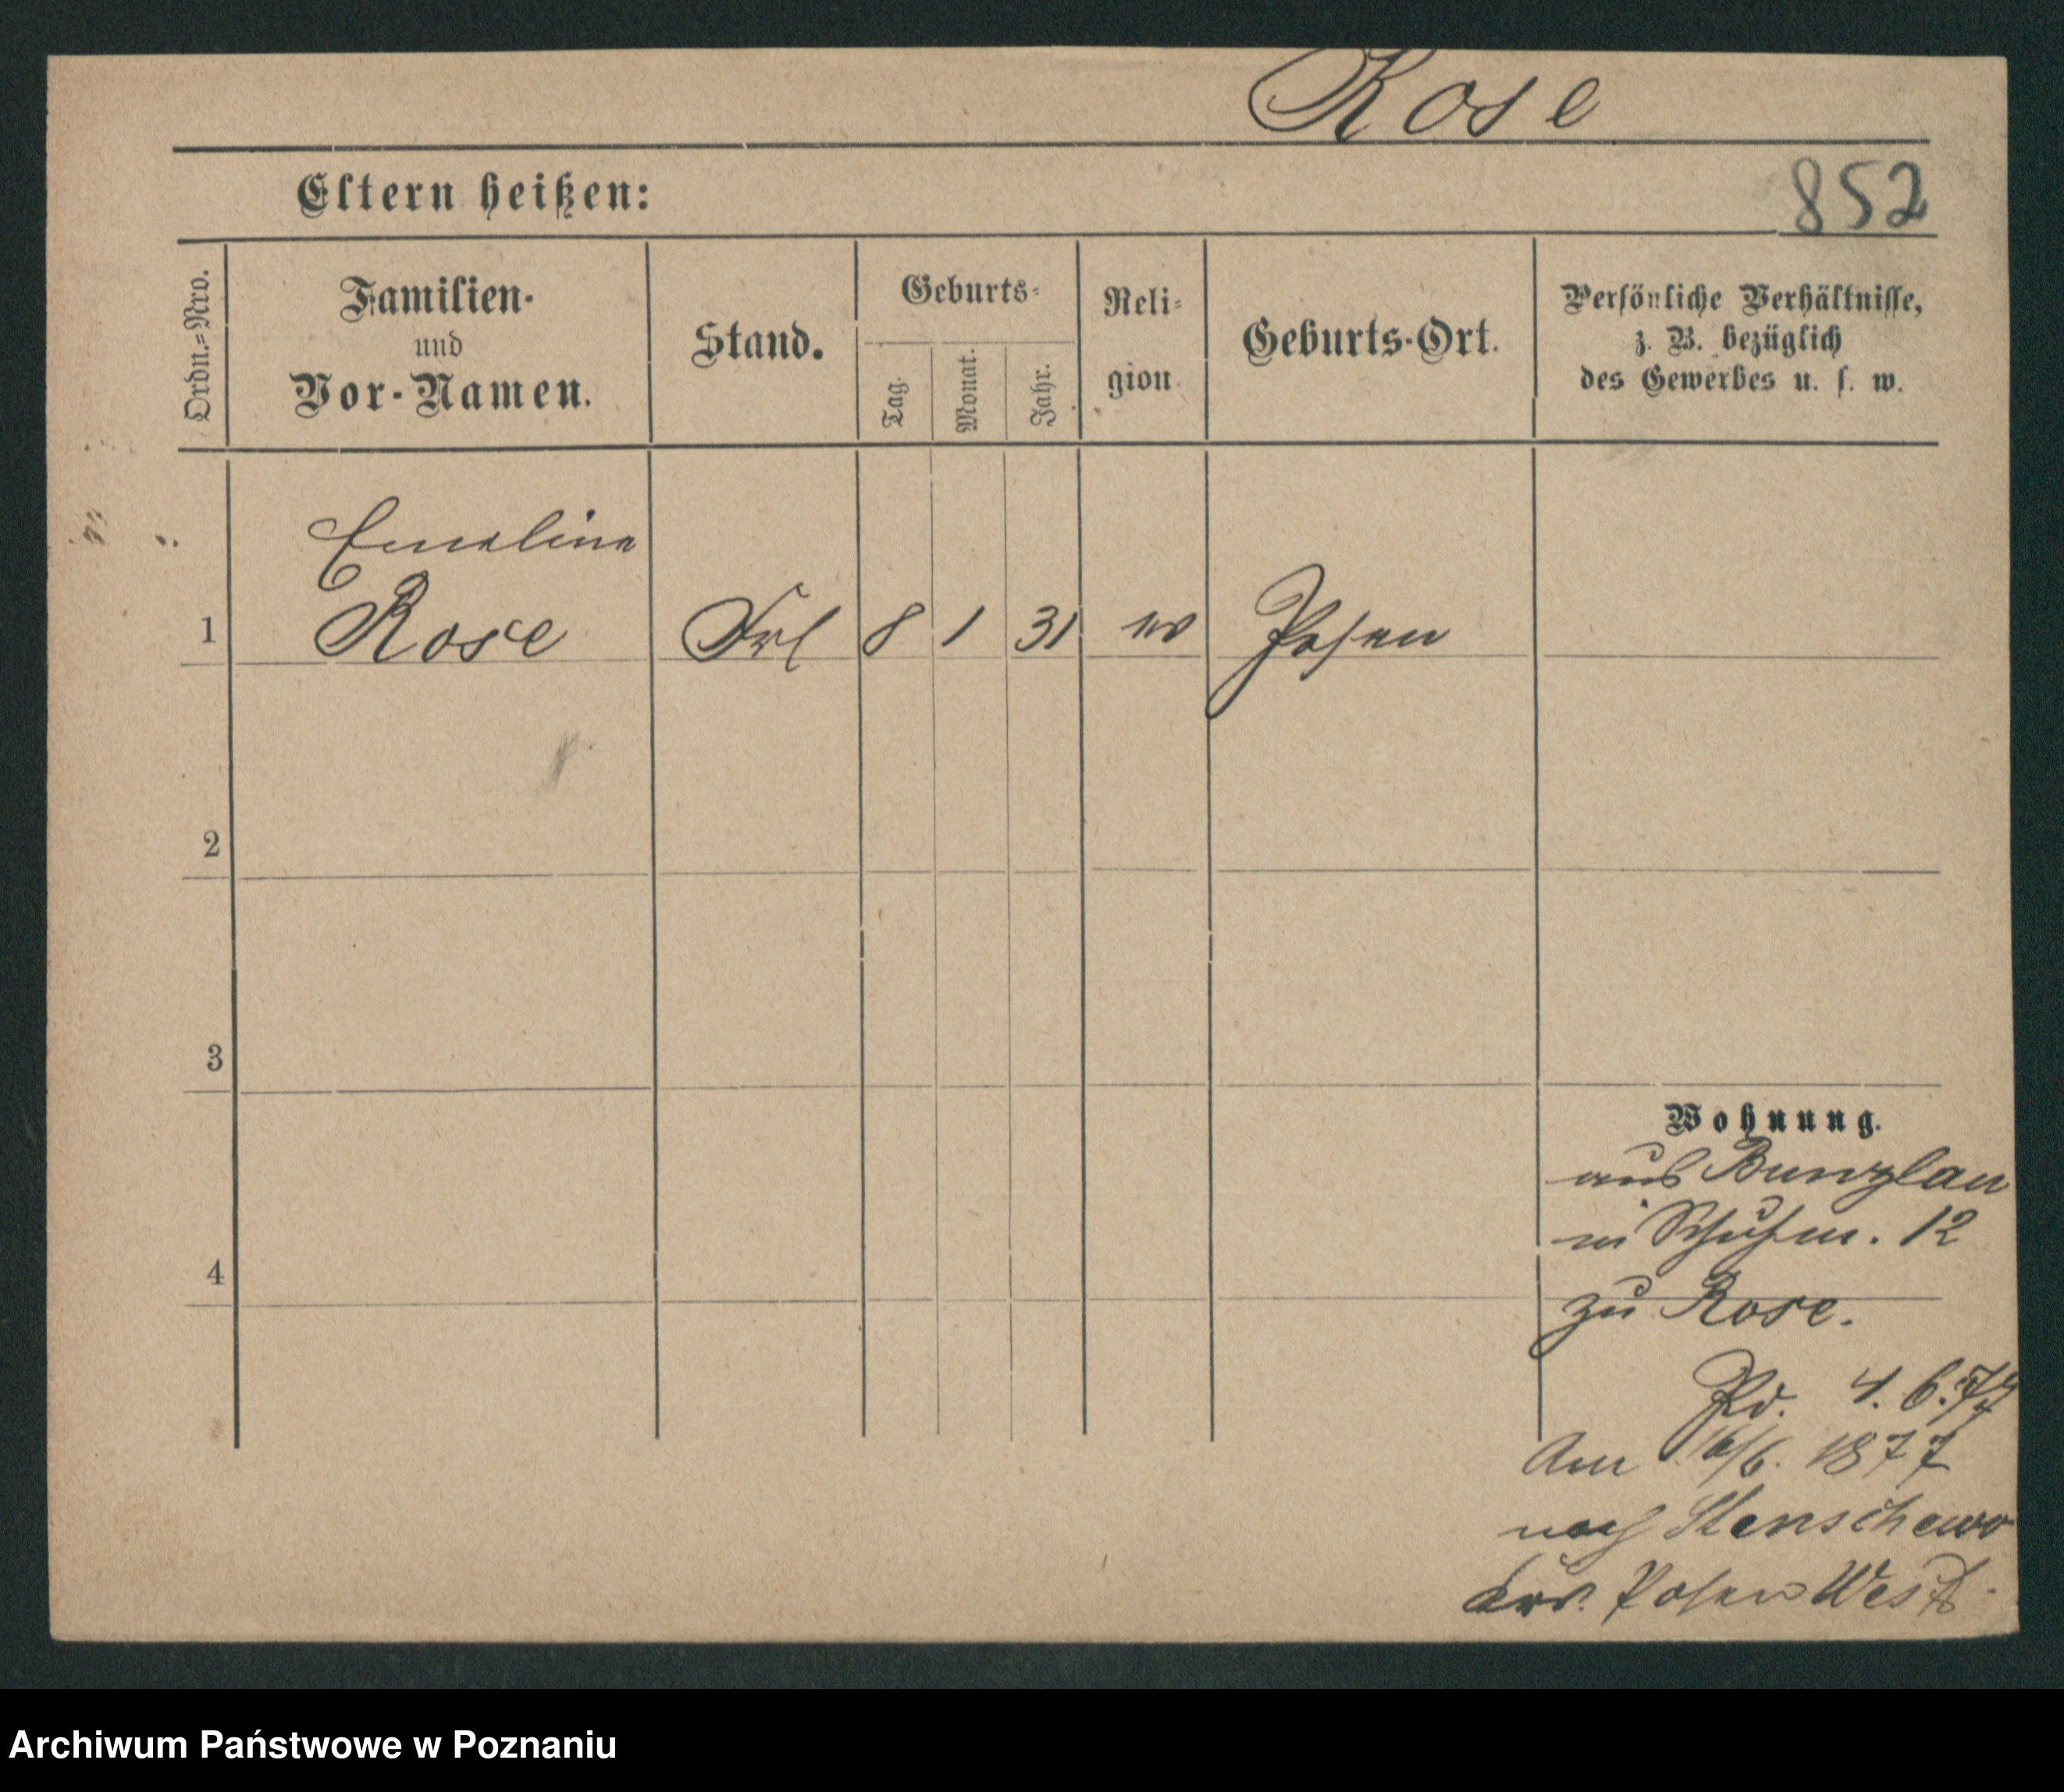 Rose
Eltern heißen:
852
Ordn.=Nro.
Familien-
und
Vor-Namen.
Stand.
Geburts=
Tag.
Monat.
Jahr.
Reli=
gion
Geburts-Ort.
Persönliche Verhältnisse,
z. B. bezüglich
des Gewerbes u. s. w.
Emeline
1 Rose Frl 8 1 31 ev Posen
2
3
4
Wohnung.
aus Bunzlau
in Schuhm. 12
zu Rose.
4. 6. 77
Am 16/6. 1877
nach Stenschewo
Krs. Posen West.
Archiwum Państwowe w Poznaniu